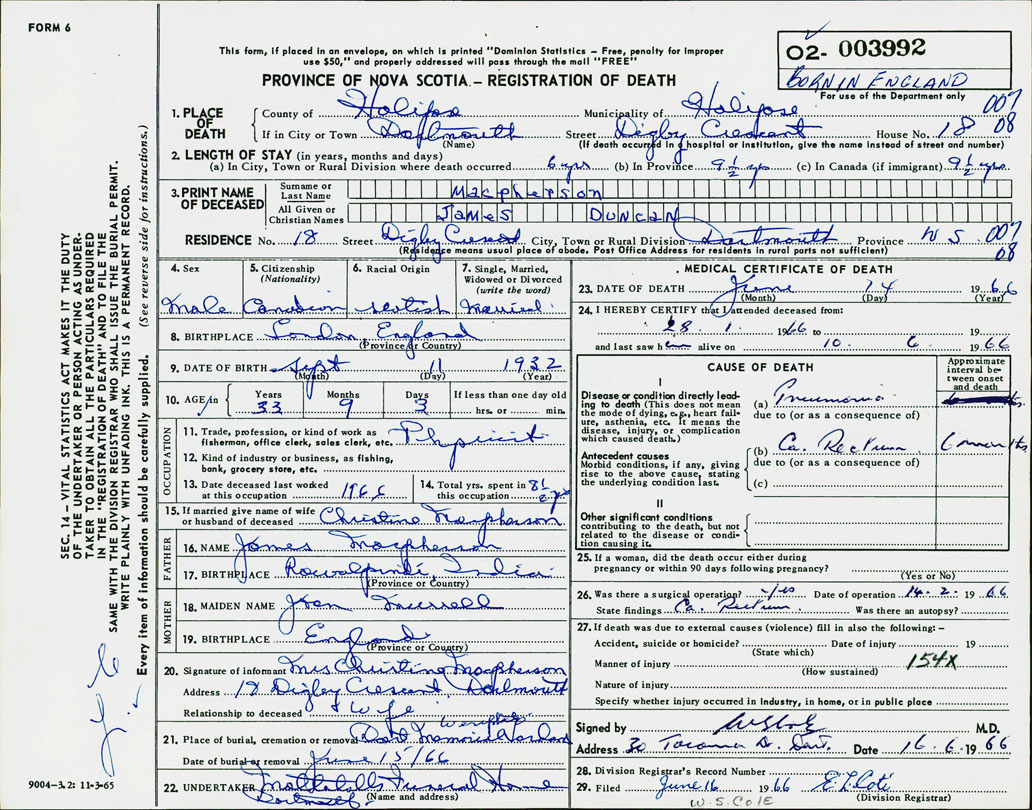 FORM 6
This form, if placed in an envelope, on which is printed "Dominion Statistics – Free, penalty for improper
use $50," and properly addressed will pass through the mail "FREE"
PROVINCE OF NOVA SCOTIA – REGISTRATION OF DEATH
02- 003992
BORN IN ENGLAND
For use of the Department only
007
08
1. PLACE OF DEATH
County of Halifax Municipality of Halifax
If in City or Town Dartmouth Street Digby Crescent House No. 18
(Name) (If death occurred in a hospital or institution, give the name instead of street and number)
2. LENGTH OF STAY (in years, months and days)
(a) In City, Town or Rural Division where death occurred 6 yrs (b) In Province 9 1/2 yrs (c) In Canada (if immigrant) 9 1/2 yrs
3. PRINT NAME OF DECEASED
Surname or Last Name Macpherson
All Given or Christian Names JAMES DUNCAN
RESIDENCE No. 18 Street Digby Crescent City, Town or Rural Division Dartmouth Province N S 007
(Residence means usual place of abode. Post Office Address for residents in rural parts not sufficient) 08
4. Sex Male
5. Citizenship (Nationality) Canadian
6. Racial Origin Scotish
7. Single, Married, Widowed or Divorced (write the word) Married
8. BIRTHPLACE London, England
(Province or Country)
9. DATE OF BIRTH Sept 11 1932
(Month) (Day) (Year)
10. AGE in Years 33 Months 9 Days 3 If less than one day old hrs. or min.
OCCUPATION
11. Trade, profession, or kind of work as fisherman, office clerk, sales clerk, etc. Physicist
12. Kind of industry or business, as fishing, bank, grocery store, etc.
13. Date deceased last worked at this occupation 1966
14. Total yrs. spent in this occupation 8 1/2 yrs
15. If married give name of wife or husband of deceased Christine Macpherson
FATHER
16. NAME James Macpherson
17. BIRTHPLACE Rawalpindi, India
(Province or Country)
MOTHER
18. MAIDEN NAME Joan
19. BIRTHPLACE England
(Province or Country)
20. Signature of informant Mrs Christine Macpherson
Address 18 Digby Crescent Dartmouth
Relationship to deceased Wife
21. Place of burial, cremation or removal Dart Memorial Gardens
Date of burial or removal June 15/66
22. UNDERTAKER Mattatalls Funeral Home
Dartmouth (Name and address)
. MEDICAL CERTIFICATE OF DEATH
23. DATE OF DEATH June 14 1966
(Month) (Day) (Year)
24. I HEREBY CERTIFY that I attended deceased from:
28. 1. 1966 to 19
and last saw him alive on 10. 6. 1966
CAUSE OF DEATH
Approximate interval between onset and death
I
Disease or condition directly leading to death (This does not mean the mode of dying, e.g., heart failure, asthenia, etc. It means the disease, injury, or complication which caused death.)
(a) Pneumonia
due to (or as a consequence of)
Antecedent causes
Morbid conditions, if any, giving rise to the above cause, stating the underlying condition last.
(b) Ca. Rectum 6 months
due to (or as a consequence of)
(c)
II
Other significant conditions contributing to the death, but not related to the disease or condition causing it.
25. If a woman, did the death occur either during pregnancy or within 90 days following pregnancy?
(Yes or No)
26. Was there a surgical operation? yes Date of operation 14. 2. 1966
State findings Ca. Rectum. Was there an autopsy?
27. If death was due to external causes (violence) fill in also the following: –
Accident, suicide or homicide? Date of injury 19
(State which)
154X
Manner of injury
(How sustained)
Nature of injury
Specify whether injury occurred in Industry, in home, or in public place
Signed by M.D.
Address 30 Tacoma Dr. Dart. Date 16. 6. 1966
28. Division Registrar's Record Number
29. Filed June 16 1966 E L Cote
W.S. COLE (Division Registrar)
SEC. 14 – VITAL STATISTICS ACT MAKES IT THE DUTY
OF THE UNDERTAKER OR PERSON ACTING AS UNDER-
TAKER TO OBTAIN ALL THE PARTICULARS REQUIRED
IN THE "REGISTRATION OF DEATH" AND TO FILE THE
SAME WITH THE DIVISION REGISTRAR WHO SHALL ISSUE THE BURIAL PERMIT.
WRITE PLAINLY WITH UNFADING INK. THIS IS A PERMANENT RECORD.
Every item of information should be carefully supplied. (See reverse side for instructions.)
9004-3.2: 11-3-65